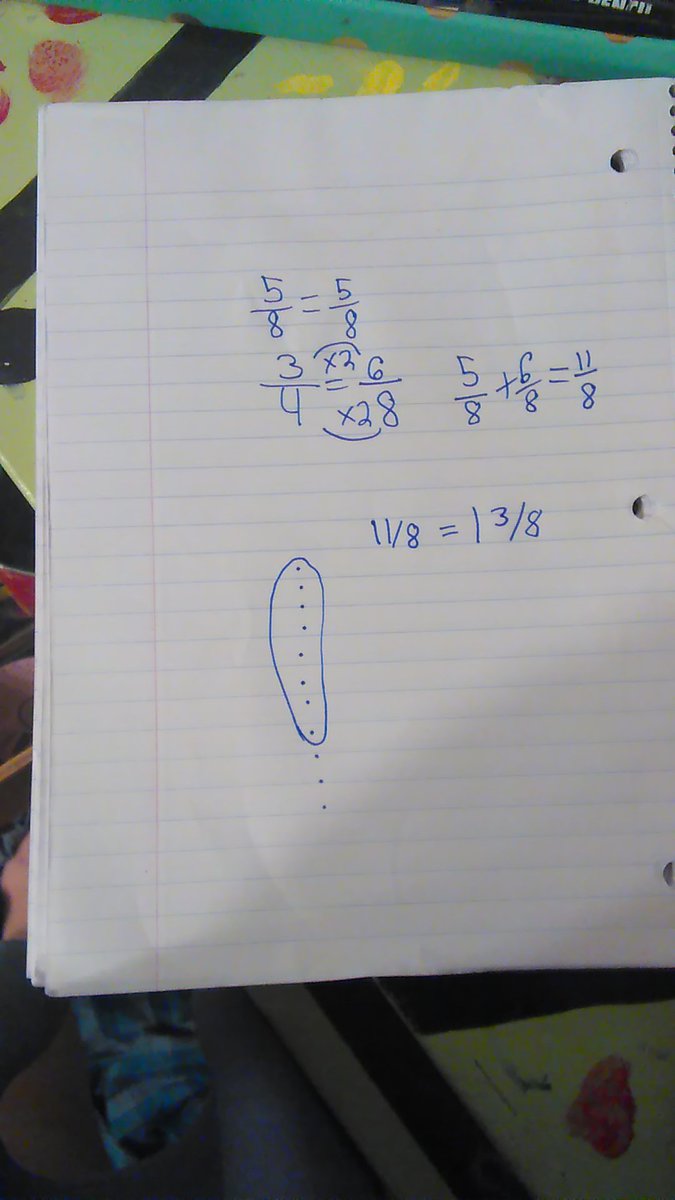 5/8 = 5/8
3/4 = 6/8 ×2 ×2
5/8 + 6/8 = 11/8
11/8 = 1 3/8